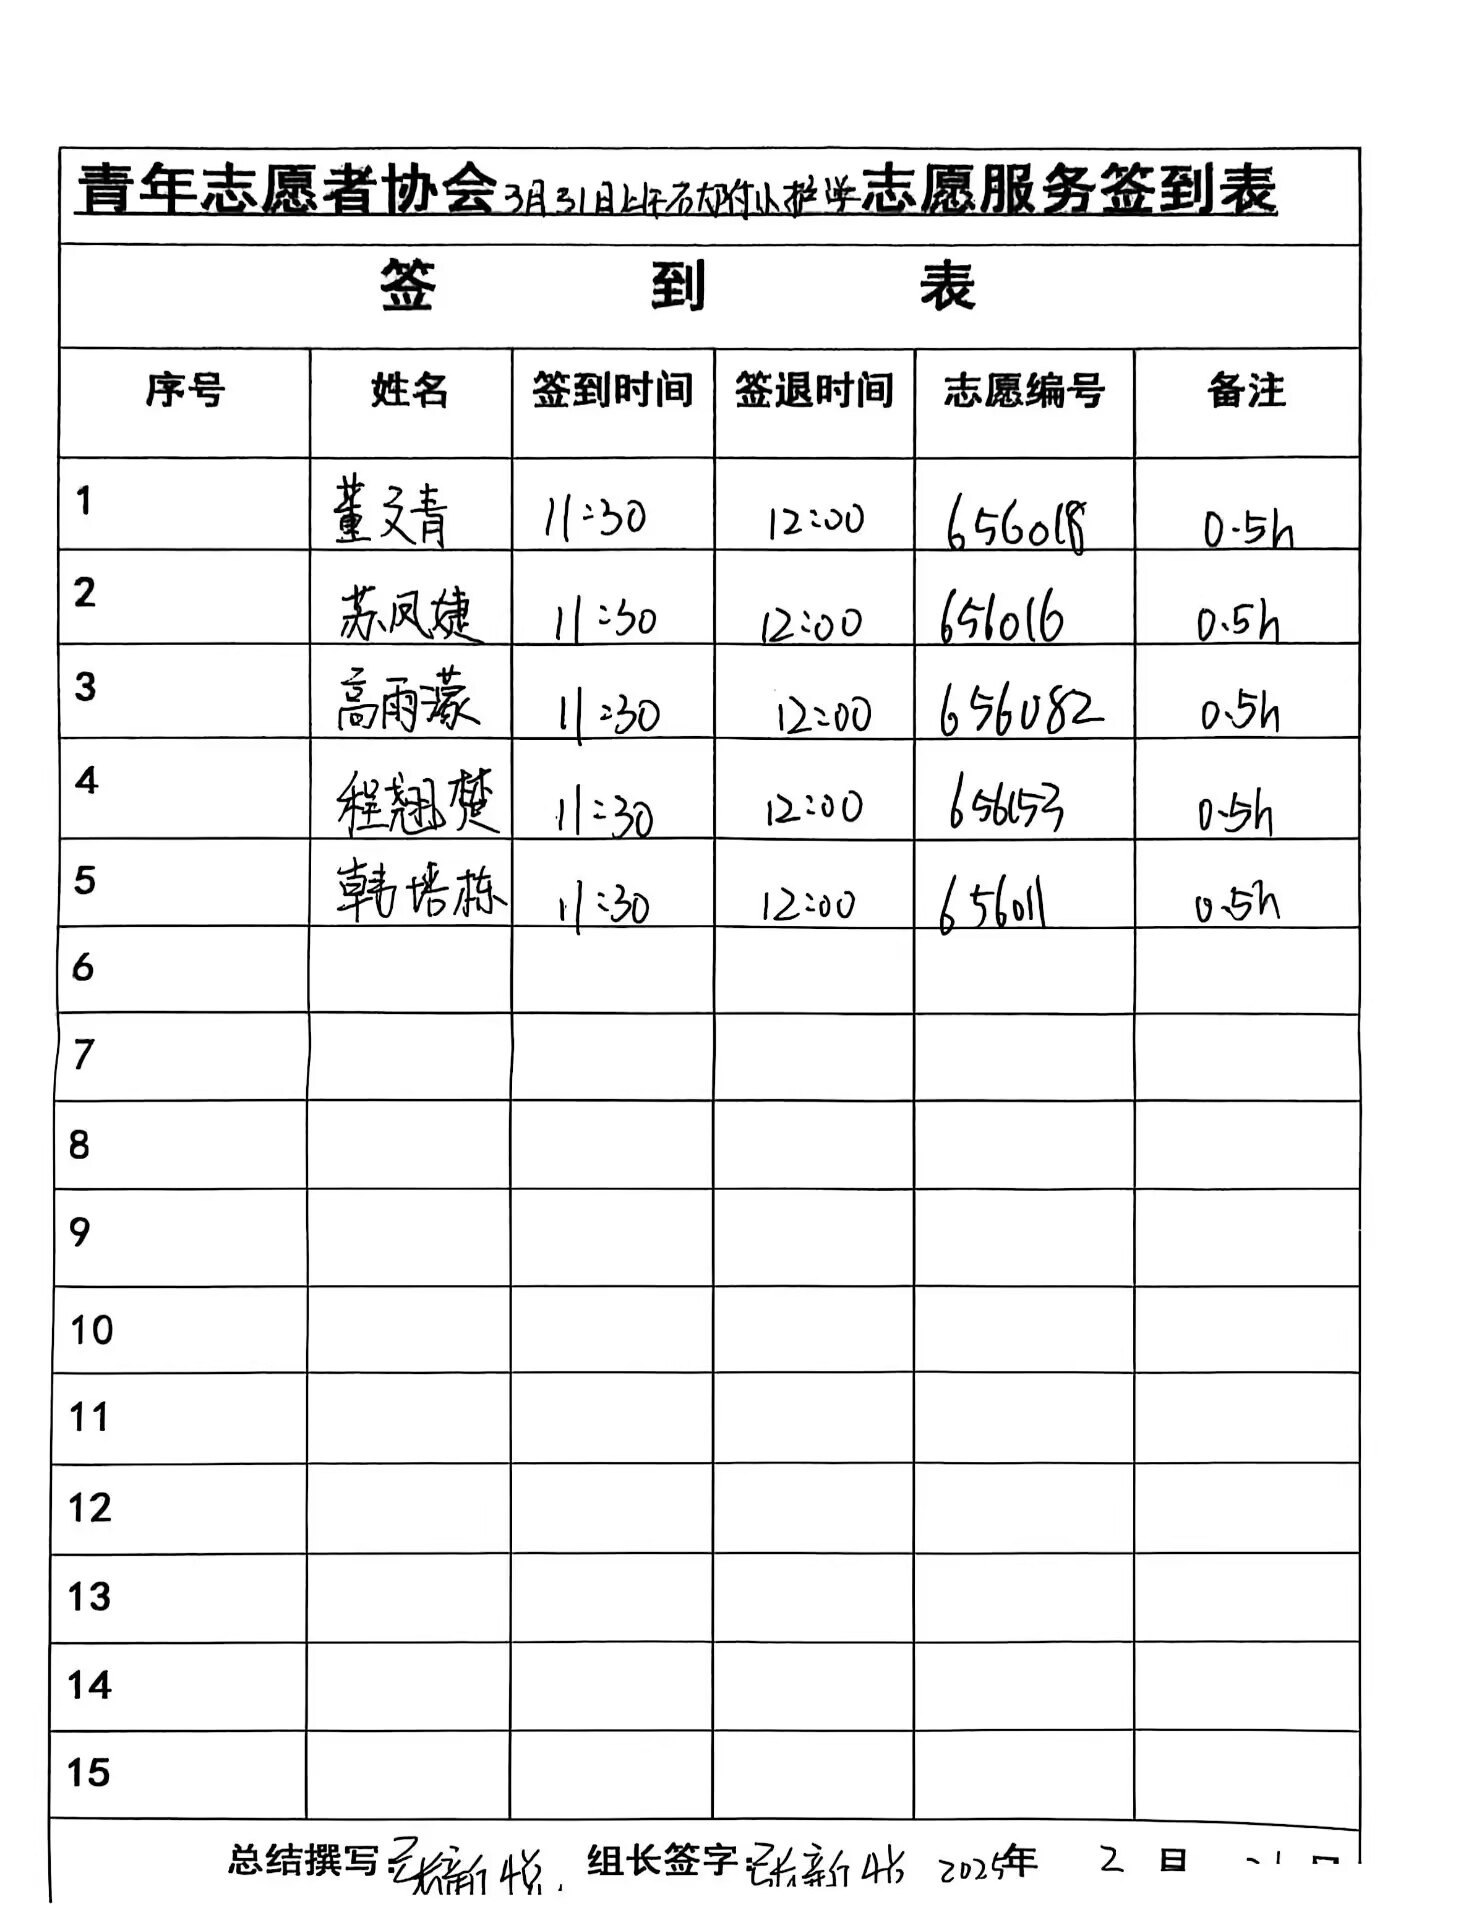 青年志愿者协会3月31日上午石大附小护学志愿服务签到表
签 到 表
序号 姓名 签到时间 签退时间 志愿编号 备注
1 董文青 11:30 12:00 656018 0.5h
2 苏凤婕 11:30 12:00 656016 0.5h
3 高雨濛 11:30 12:00 656082 0.5h
4 程翘楚 11:30 12:00 656153 0.5h
5 韩培栋 11:30 12:00 656011 0.5h
6
7
8
9
10
11
12
13
14
15
总结撰写:张新悦 组长签字:张新悦 2025年 月